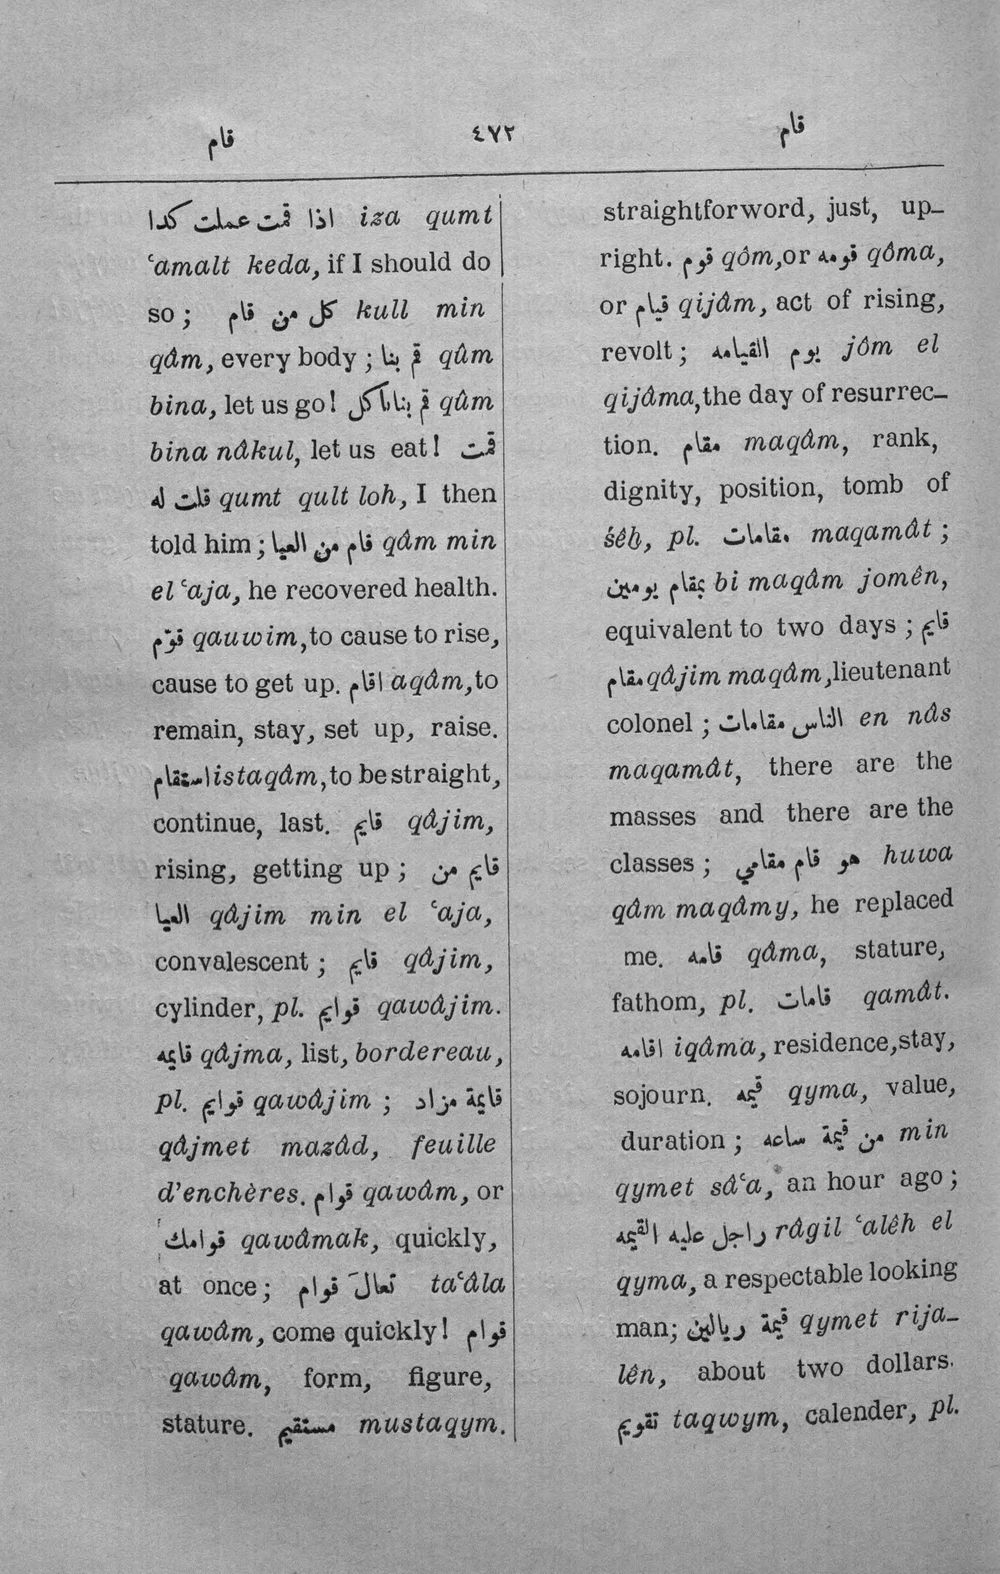 قام ٤٧٢ قام
اذا قمت عملت كدا iza qumt
ʿamalt keda, if I should do
so ; كل من قام kull min
qâm, every body ; قم بنا qûm
bina, let us go! قم بنا ناكل qûm
bina nâkul, let us eat! قمت
قلت له qumt qult loh, I then
told him ; قام من العيا qâm min
el ʿaja, he recovered health.
قوّم qauwim, to cause to rise,
cause to get up. اقام aqâm, to
remain, stay, set up, raise.
استقام istaqâm, to be straight,
continue, last. قايم qâjim,
rising, getting up ; قايم من
العيا qâjim min el ʿaja,
convalescent ; قايم qâjim,
cylinder, pl. قوايم qawâjim.
قايمه qâjma, list, bordereau,
pl. قوايم qawâjim ; قايمة مزاد
qâjmet mazâd, feuille
d'enchères. قوام qawâm, or
قوامك qawâmak, quickly,
at once; تعالَ قوام taʿâla
qawâm, come quickly! قوام
qawâm, form, figure,
stature. مستقيم mustaqym.
straightforword, just, up-
right. قوم qôm, or قومه qôma,
or قيام qijâm, act of rising,
revolt ; يوم القيامه jôm el
qijâma, the day of resurrec-
tion. مقام maqâm, rank,
dignity, position, tomb of
śêḫ, pl. مقامات maqamât ;
بمقام يومين bi maqâm jomên,
equivalent to two days ; قايم
مقام qâjim maqâm, lieutenant
colonel ; الناس مقامات en nâs
maqamât, there are the
masses and there are the
classes ; هو قام مقامي huwa
qâm maqâmy, he replaced
me. قامه qâma, stature,
fathom, pl. قامات qamât.
اقامه iqâma, residence, stay,
sojourn. قيمه qyma, value,
duration ; من قيمة ساعه min
qymet sâʿa, an hour ago ;
راجل عليه القيمه râgil ʿalêh el
qyma, a respectable looking
man; قيمة ريالين qymet rija-
lên, about two dollars.
تقويم taqwym, calender, pl.